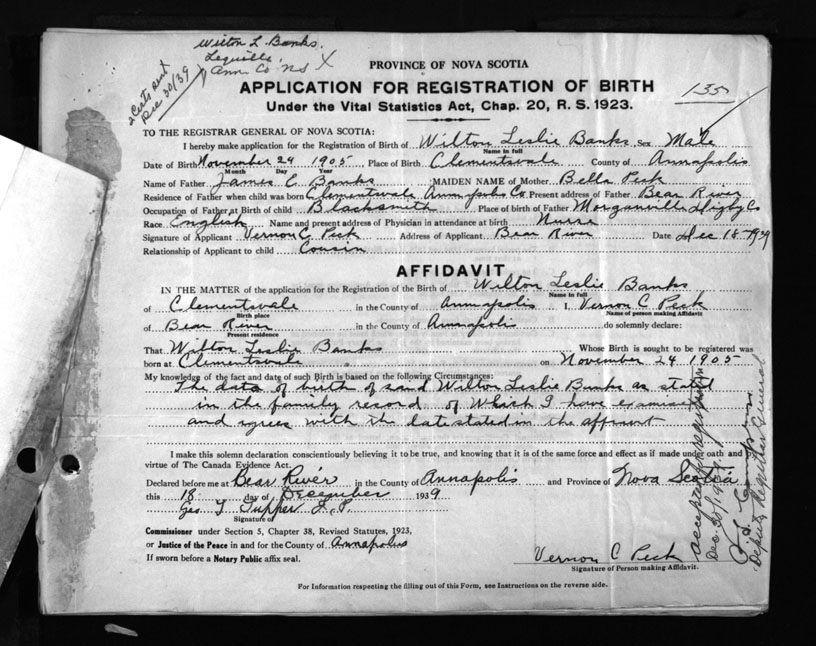 Wilton L Banks.
Lequille,
Ann. Co NS X
2 Certs sent
Dec 30/39
PROVINCE OF NOVA SCOTIA
APPLICATION FOR REGISTRATION OF BIRTH
Under the Vital Statistics Act, Chap. 20, R. S. 1923.
TO THE REGISTRAR GENERAL OF NOVA SCOTIA:
I hereby make application for the Registration of Birth of Wilton Leslie Banks Sex Male
Name in full
Date of Birth November 24 1905 Place of Birth Clementsvale County of Annapolis
Month Day Year
Name of Father James C Banks MAIDEN NAME of Mother Bella Peck
Residence of Father when child was born Clementsvale Annapolis Co Present address of Father Bear River
Occupation of Father at Birth of child Blacksmith Place of birth of Father Morganville Digby Co
Race English Name and present address of Physician in attendance at birth Nurse
Signature of Applicant Vernon C Peck Address of Applicant Bear River Date Dec 18-1939
Relationship of Applicant to child Cousin
AFFIDAVIT
IN THE MATTER of the application for the Registration of the Birth of Wilton Leslie Banks
Name in full
of Clementsvale in the County of Annapolis I, Vernon C Peck
Birth place Name of person making Affidavit
of Bear River in the County of Annapolis do solemnly declare:
Present residence
That Wilton Leslie Banks Whose Birth is sought to be registered was
born at Clementsvale on November 24 1905
My knowledge of the fact and date of such Birth is based on the following Circumstances:
The data of birth of said Wilton Leslie Banks as stated
in the family record of Which I have examined
and agrees with the date stated in the affidavit
I make this solemn declaration conscientiously believing it to be true, and knowing that it is of the same force and effect as if made under oath and by
virtue of The Canada Evidence Act.
Declared before me at Bear River in the County of Annapolis and Province of Nova Scotia
this 18 day of December 1939
Geo. T Tupper J. P.
Signature of
Commissioner under Section 5, Chapter 38, Revised Statutes, 1923,
or Justice of the Peace in and for the County of Annapolis
If sworn before a Notary Public affix seal.
Vernon C Peck
Signature of Person making Affidavit.
For Information respecting the filling out of this Form, see Instructions on the reverse side.
accepted for registration
Dec 30/1939
Deputy Registrar General